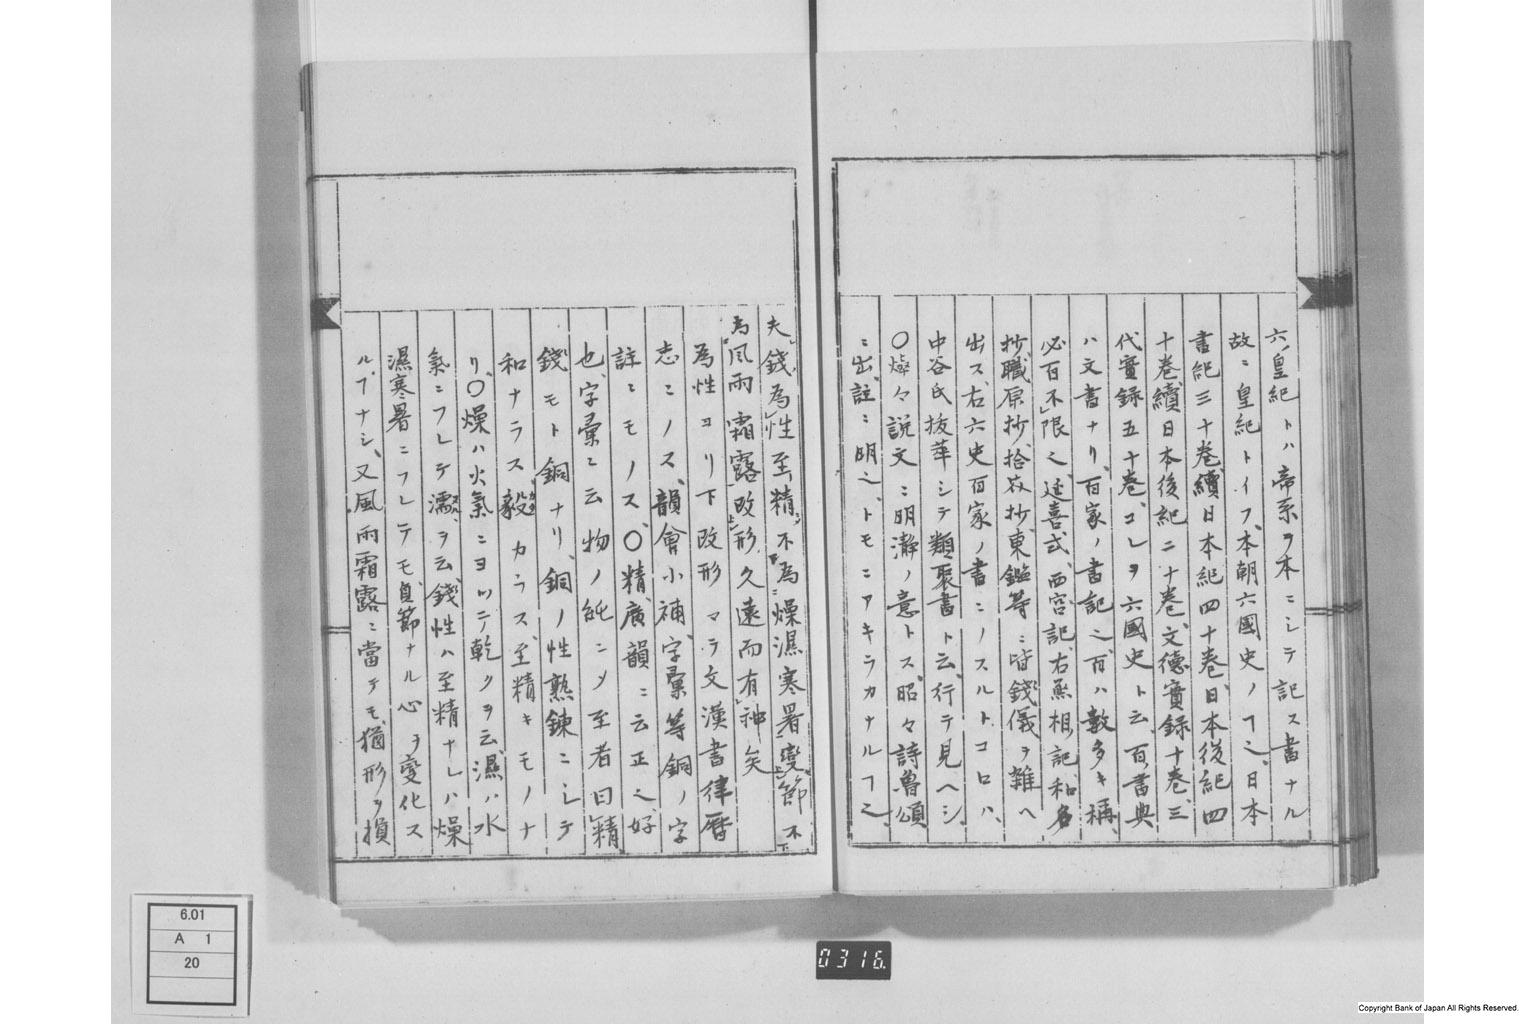 六皇紀トハ帝系ヲ本ニシテ記ス書ナル
故ニ皇紀トイフ本朝六國史ノ丁之日本
書紀三十巻續日本紀四十巻日本後紀四
十巻續日本後紀二十巻文徳實録十巻三
代實録五十巻コレヲ六國史ト云百書典
ハ文書ナリ百家ノ書記之百ハ数多キ稱
必百不限之延喜式西宮記右丞相記和名
抄職原抄拾芥抄東鑑等ニ皆錢儀ヲ雜ヘ
出ス右六史百家ノ書ニノスルトコロハ
中谷氏抜萃シテ類聚書ト云行テ見ヘシ
〇燦々説文ニ明瀞ノ意トス昭々詩魯頌
ニ出註ニ明之トモニアキラカナル丁之
夫錢為性至精不為燥濕寒暑變節不
為風雨霜露改形久遠而有神矣
為性ヨリ下改形マテ文漢書律暦
志ニノス韻會小補字彙等銅ノ字
註ニモノス〇精廣韻ニ云正之好
也字彙ニ云物ノ純ニメ至者曰精
錢モト銅ナリ銅ノ性熟錬ニシテ
和ナラス毅カラス至精キモノナ
リ〇燥ハ火氣ニヨツテ乾クヲ云濕ハ水
氣ニフレテ濡ヲ云錢性ハ至精ナレハ燥
濕寒暑ニフレテモ貞節ナル心ヲ變化ス
ル丁ナシ又風雨霜露ニ當テモ猶形ヲ損
6.01
A 1
20
0316
Copyright Bank of Japan All Rights Reserved.